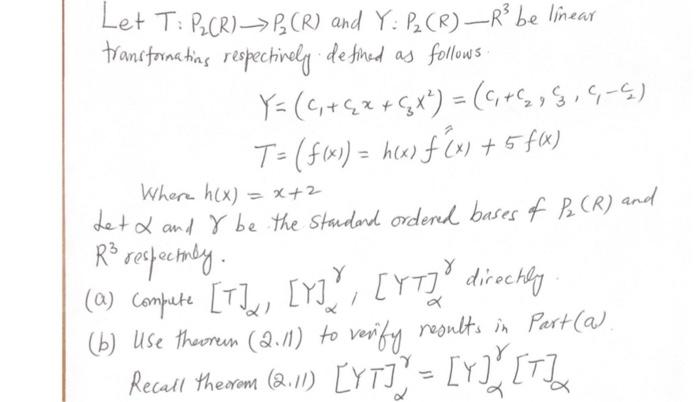 Let T: P₂(R) → P₂(R) and Y: P₂(R) — R³ be linear
transformatins respectively defined as follows.
Y = (C₁ + C₂x + C₃x²) = (C₁+C₂, C₃, C₁-C₂)
T = (f(x)) = h(x) f''(x) + 5 f(x)
Where h(x) = x+2
Let α and γ be the standard ordered bases of P₂(R) and
R³ respectively.
(a) Compute [T]_α, [Y]_α^γ, [YT]_α^γ directly.
(b) Use theorem (2.11) to verify results in Part(a).
Recall theorem (2.11) [YT]_α^γ = [Y]_α^γ [T]_α